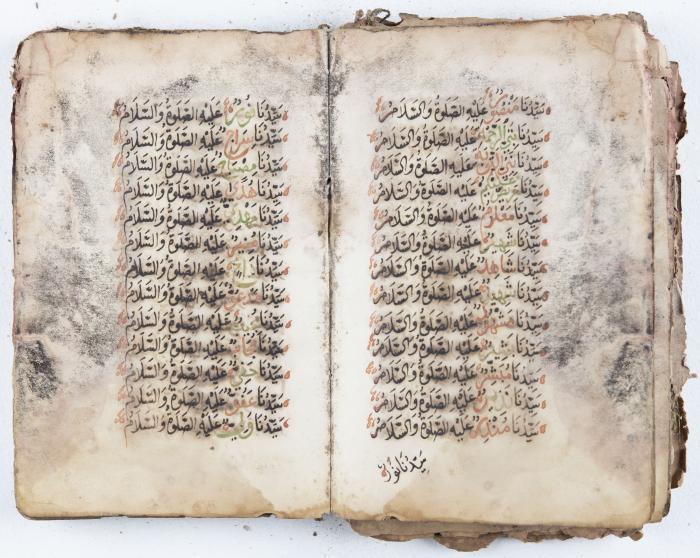 سَيِّدُنَا مَنْصُورٌ عَلَيْهِ الصَّلٰوةُ وَالسَّلَامُ
سَيِّدُنَا نَبِيُّ الرَّحْمَةِ عَلَيْهِ الصَّلٰوةُ وَالسَّلَامُ
سَيِّدُنَا نَبِيُّ التَّوْبَةِ عَلَيْهِ الصَّلٰوةُ وَالسَّلَامُ
سَيِّدُنَا عَلَيْهِ الصَّلٰوةُ وَالسَّلَامُ
سَيِّدُنَا مَعْلُومٌ عَلَيْهِ الصَّلٰوةُ وَالسَّلَامُ
سَيِّدُنَا شَهِيرٌ عَلَيْهِ الصَّلٰوةُ وَالسَّلَامُ
سَيِّدُنَا شَاهِدٌ عَلَيْهِ الصَّلٰوةُ وَالسَّلَامُ
سَيِّدُنَا شَهِيدٌ عَلَيْهِ الصَّلٰوةُ وَالسَّلَامُ
سَيِّدُنَا مَشْهُودٌ عَلَيْهِ الصَّلٰوةُ وَالسَّلَامُ
سَيِّدُنَا بَشِيرٌ عَلَيْهِ الصَّلٰوةُ وَالسَّلَامُ
سَيِّدُنَا مُبَشِّرٌ عَلَيْهِ الصَّلٰوةُ وَالسَّلَامُ
سَيِّدُنَا نَذِيرٌ عَلَيْهِ الصَّلٰوةُ وَالسَّلَامُ
سَيِّدُنَا مُنْذِرٌ عَلَيْهِ الصَّلٰوةُ وَالسَّلَامُ
سَيِّدُنَا نُورٌ
سَيِّدُنَا نُورٌ عَلَيْهِ الصَّلٰوةُ وَالسَّلَامُ
سَيِّدُنَا سِرَاجٌ عَلَيْهِ الصَّلٰوةُ وَالسَّلَامُ
سَيِّدُنَا مِصْبَاحٌ عَلَيْهِ الصَّلٰوةُ وَالسَّلَامُ
سَيِّدُنَا هُدًى عَلَيْهِ الصَّلٰوةُ وَالسَّلَامُ
سَيِّدُنَا مَهْدِيٌّ عَلَيْهِ الصَّلٰوةُ وَالسَّلَامُ
سَيِّدُنَا مُنِيرٌ عَلَيْهِ الصَّلٰوةُ وَالسَّلَامُ
سَيِّدُنَا دَاعٍ عَلَيْهِ الصَّلٰوةُ وَالسَّلَامُ
سَيِّدُنَا مَدْعُوٌّ عَلَيْهِ الصَّلٰوةُ وَالسَّلَامُ
سَيِّدُنَا مُجِيبٌ عَلَيْهِ الصَّلٰوةُ وَالسَّلَامُ
سَيِّدُنَا مُجَابٌ عَلَيْهِ الصَّلٰوةُ وَالسَّلَامُ
سَيِّدُنَا حَفِيٌّ عَلَيْهِ الصَّلٰوةُ وَالسَّلَامُ
سَيِّدُنَا عَفُوٌّ عَلَيْهِ الصَّلٰوةُ وَالسَّلَامُ
سَيِّدُنَا وَلِيٌّ عَلَيْهِ الصَّلٰوةُ وَالسَّلَامُ